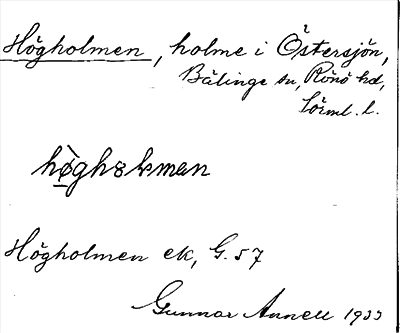 Högholmen, holme i Östersjön,
Bälinge sn, Rönö hd,
Sörml. l.
Högholmen ek, G. 57
Gunnar Annell 1933